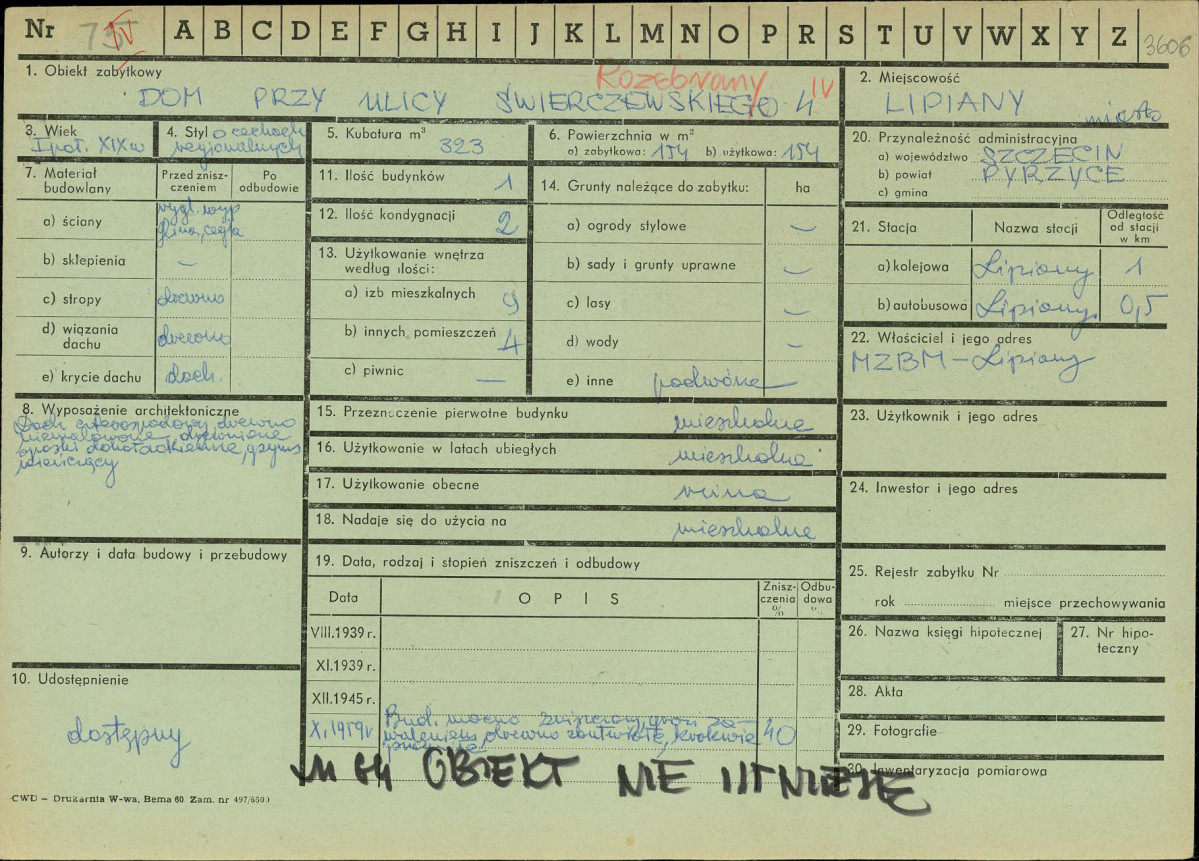 Nr IV A B C D E F G H I J K L M N O P R S T U V W X Y Z 3606
1. Obiekt zabytkowy
Rozebrany IV
DOM PRZY ULICY ŚWIERCZEWSKIEGO 4
2. Miejscowość
LIPIANY miasto
3. Wiek
I poł. XIX w
4. Styl o cechach
regjonalnych
5. Kubatura m³
323
6. Powierzchnia w m²
a) zabytkowa: 154 b) użytkowa: 154
20. Przynależność administracyjna
a) województwo SZCZECIN
b) powiat PYRZYCE
c) gmina
7. Materiał
budowlany
Przed znisz-
czeniem
Po
odbudowie
a) ściany
wyp
glina, cegła
b) sklepienia –
c) stropy drewno
d) wiązania
dachu drewno
e) krycie dachu dach.
11. Ilość budynków 1
12. Ilość kondygnacji 2
13. Użytkowanie wnętrza
według ilości:
a) izb mieszkalnych 9
b) innych pomieszczeń 4
c) piwnic —
14. Grunty należące do zabytku: ha
a) ogrody stylowe –
b) sady i grunty uprawne –
c) lasy –
d) wody –
e) inne podwórze –
21. Stacja Nazwa stacji
Odległość
od stacji
w km
a) kolejowa Lipiany 1
b) autobusowa Lipiany 0,5
22. Właściciel i jego adres
MZBM – Lipiany
8. Wyposażenie architektoniczne
Dach czterospadowy, drewno
opaski dookoła okienne, gzyms
wieńczący
15. Przeznaczenie pierwotne budynku
mieszkalne
16. Użytkowanie w latach ubiegłych
mieszkalne
17. Użytkowanie obecne
ruina
18. Nadaje się do użycia na
mieszkalne
23. Użytkownik i jego adres
24. Inwestor i jego adres
9. Autorzy i data budowy i przebudowy
19. Data, rodzaj i stopień zniszczeń i odbudowy
Data OPIS
Znisz-
czenia
%
Odbu-
dowa
%
VIII.1939 r.
XI.1939 r.
XII.1945 r.
X.1959 r
Bud. mocno zniszczony, grozi za-
waleniem, drewno zbutwiałe, krokwie
40
25. Rejestr zabytku Nr
rok miejsce przechowywania
26. Nazwa księgi hipotecznej
27. Nr hipo-
teczny
28. Akta
29. Fotografie
30. Inwentaryzacja pomiarowa
10. Udostępnienie
dostępny
w 64 OBIEKT NIE ISTNIEJE
CWD – Drukarnia W-wa, Bema 60. Zam. nr 497/650